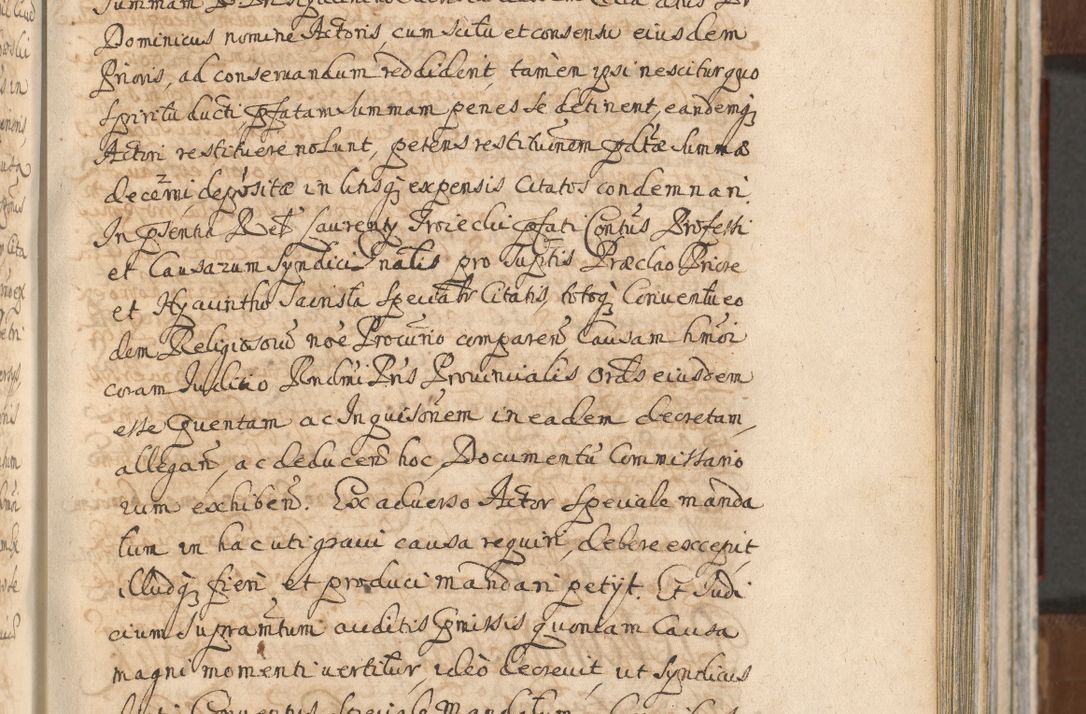 Dominicus nomine Actoris, cum scitu et consensu eiusdem
Prioris, ad conseruandum reddiderit, tamen ipsi nescitur quo
Spiritu ducti pfatam summam penes se detinent, eandemq
Actori restituere nolunt, petens restituinem pdtæ summæ
decerni, depositæ in litisq expensis Citatos condemnari.
In pntia Rel Laurenty Troiecki pfati Contus Professi
et Causarum Syndici Gnalis pro Suptis Præclao Priore
et Hyacintho Sacrista specialr Citatis, totoq Conventu eo
dem Religiosorū noe Procurio comparen Causam hmoi
coram Juditio Rndmi Pris Prouincialis Ords eiusdem
esse pventam ac Inquisonem in eadem decretam,
allegan, ac deducen hoc Documentū Commissario
rum exhiben. Ex aduerso Actor speciale manda
tum in hac uti graui causa requiri, debere excepit,
illudq fieri et produci mandari petijt. Et Judi
cium Supramtum auditis pmissis quoniam Causa
magni momenti vertitur, ideò decreuit, ut Syndicus